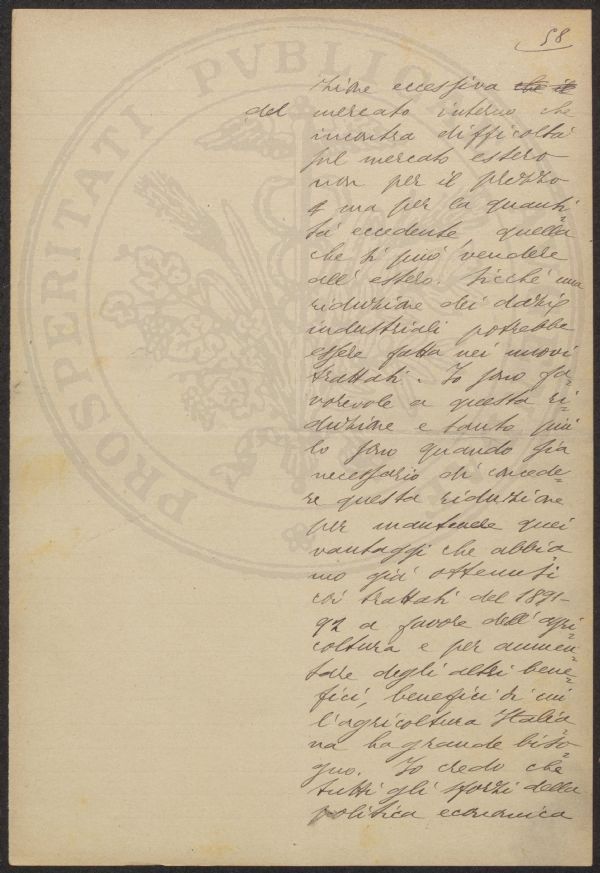 58
PROSPERITATI PVBLIC
zione eccessiva che il
del mercato interno che
incontra difficoltà
sul mercato estero
non per il prezzo
ma per la quanti
tà eccedente quella
che si può vendere
all'estero. Sicché una
riduzione dei dazi
industriali potrebbe
essere fatta nei nuovi
trattati. Io sono fa-
vorevole a questa ri-
duzione e tanto più
lo sono quando sia
necessario di concede-
re questa riduzione
per mantenere quei
vantaggi che abbia-
mo già ottenuti
coi trattati del 1891-
92 a favore dell'agri-
coltura e per aumen-
tare degli altri bene-
fici, benefici di cui
l'agricoltura Italia-
na ha grande biso-
gno. Io credo che
tutti gli sforzi della
politica economica